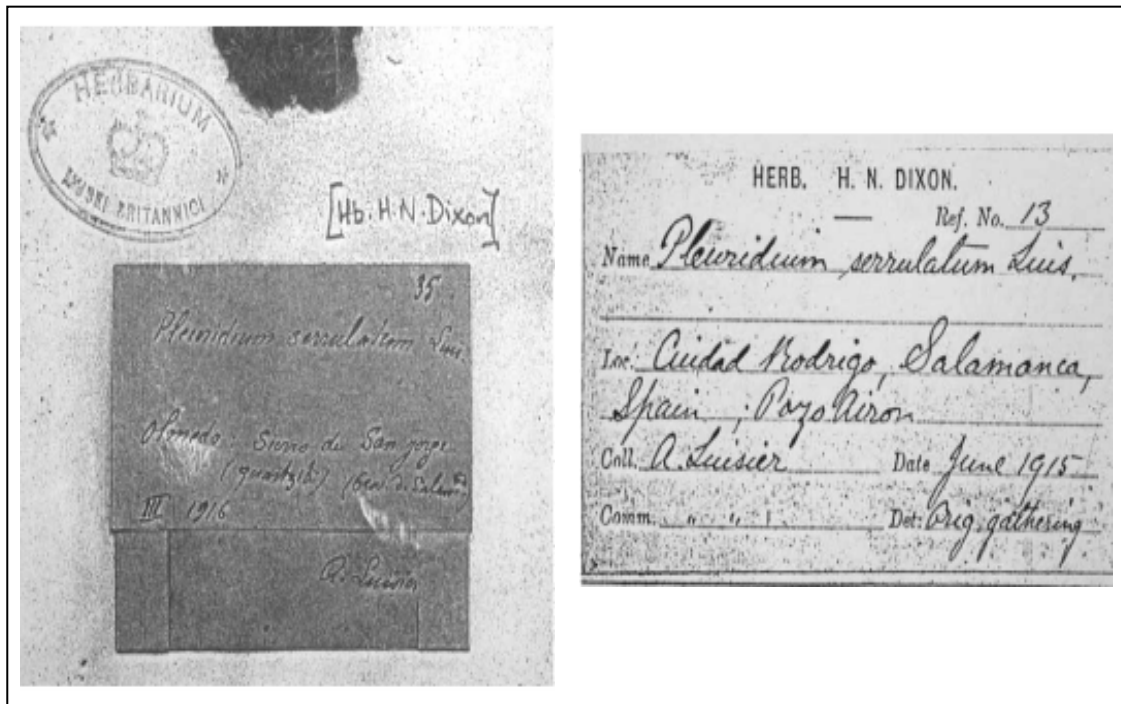 HERBARIUM
MUSEI BRITANNICI
[Hb. H. N. Dixon]
35
Pleuridium serrulatum Luis.
Olmedo: Sierro de San Jorge
(quartzite) (Prov. de Salam.
III 1916
A. Luisier
HERB. H. N. DIXON.
Ref. No. 13
Name Pleuridium serrulatum Luis.
Loc. Ciudad Rodrigo, Salamanca,
Spain ; Pozo Airon
Coll. A. Luisier Date June 1915
Comm. " " Det: Orig. gathering